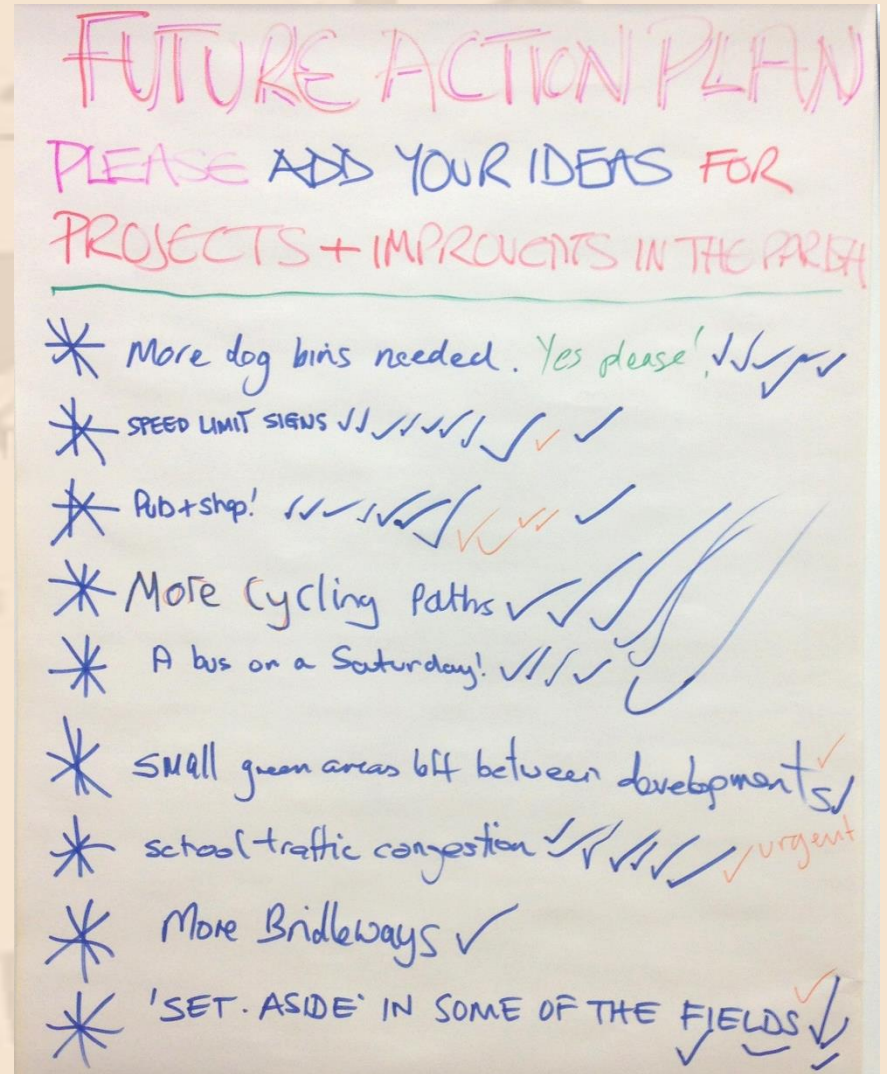 FUTURE ACTION PLAN
PLEASE ADD YOUR IDEAS FOR
PROJECTS + IMPROVENTS IN THE PARISH
More dog bins needed. Yes please!
SPEED LIMIT SIGNS
Pub + shop!
More Cycling Paths
A bus on a Saturday!
Small green areas between developments
school traffic congestion urgent
More Bridleways
'SET. ASIDE' IN SOME OF THE FIELDS